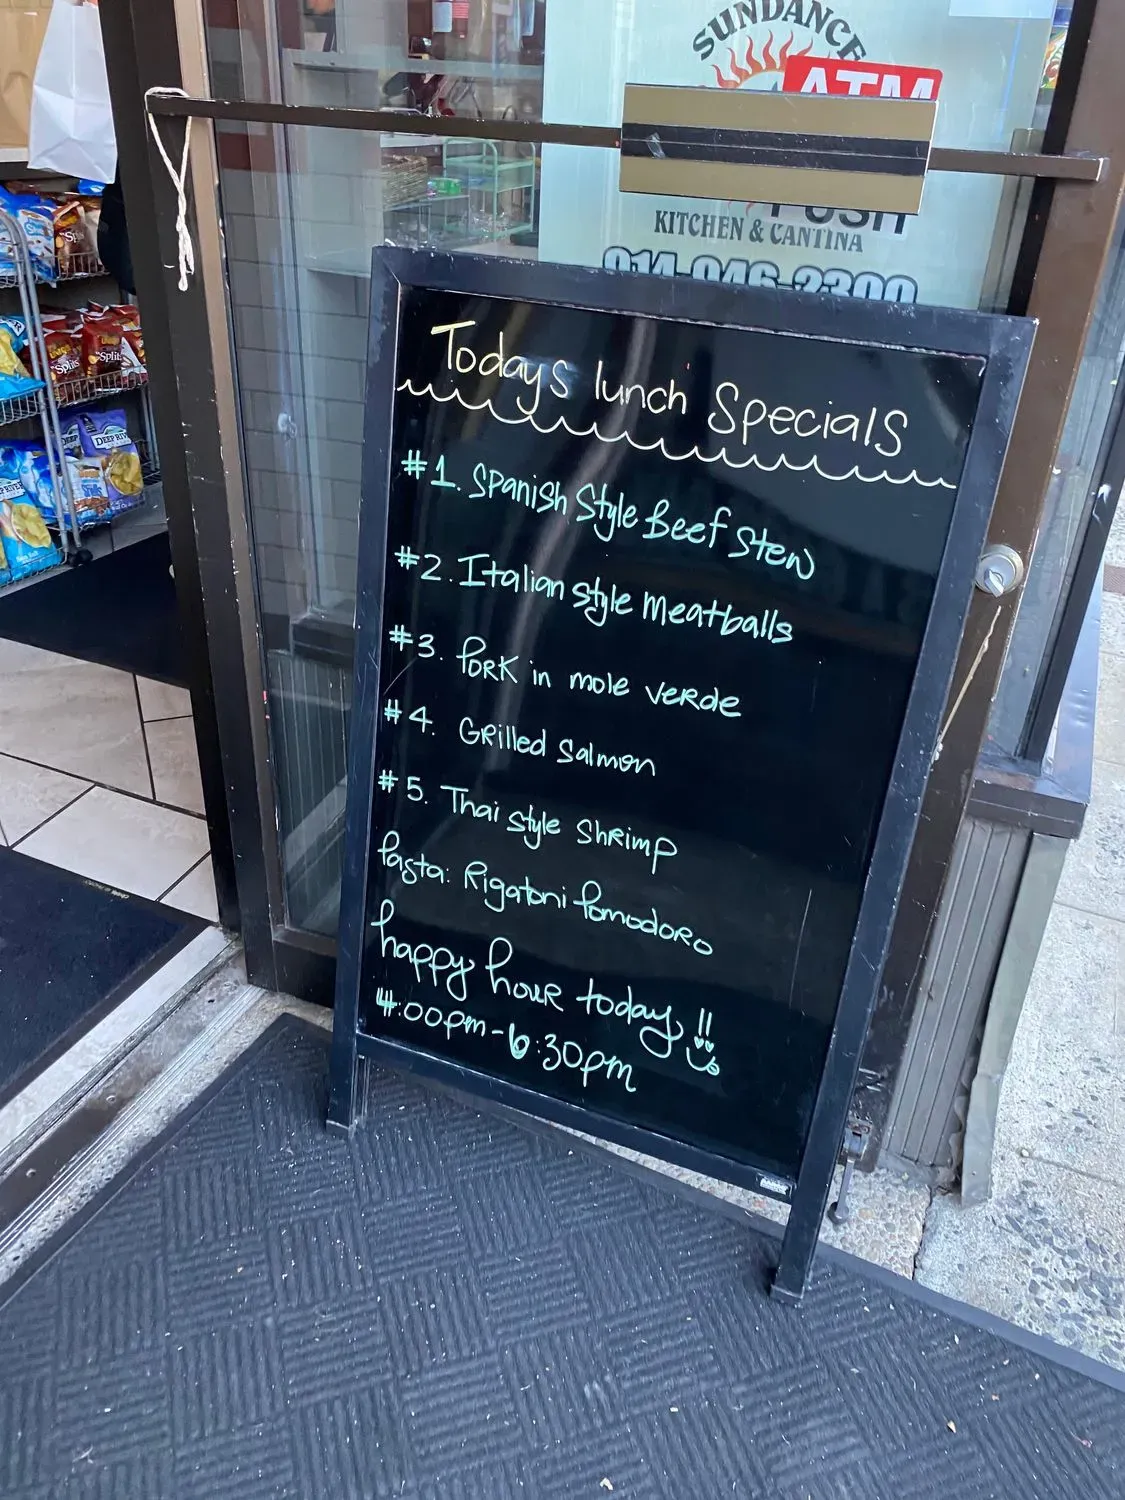 SUNDANCE
ATM
PUSH
KITCHEN & CANTINA
914-946-3300
Todays lunch Specials
#1. Spanish Style Beef Stew
#2. Italian style Meatballs
#3. Pork in mole verde
#4. Grilled Salmon
#5. Thai style Shrimp
Pasta: Rigatoni Pomodoro
happy hour today!!
4:00pm-6:30pm
Split
DEEP RIVER